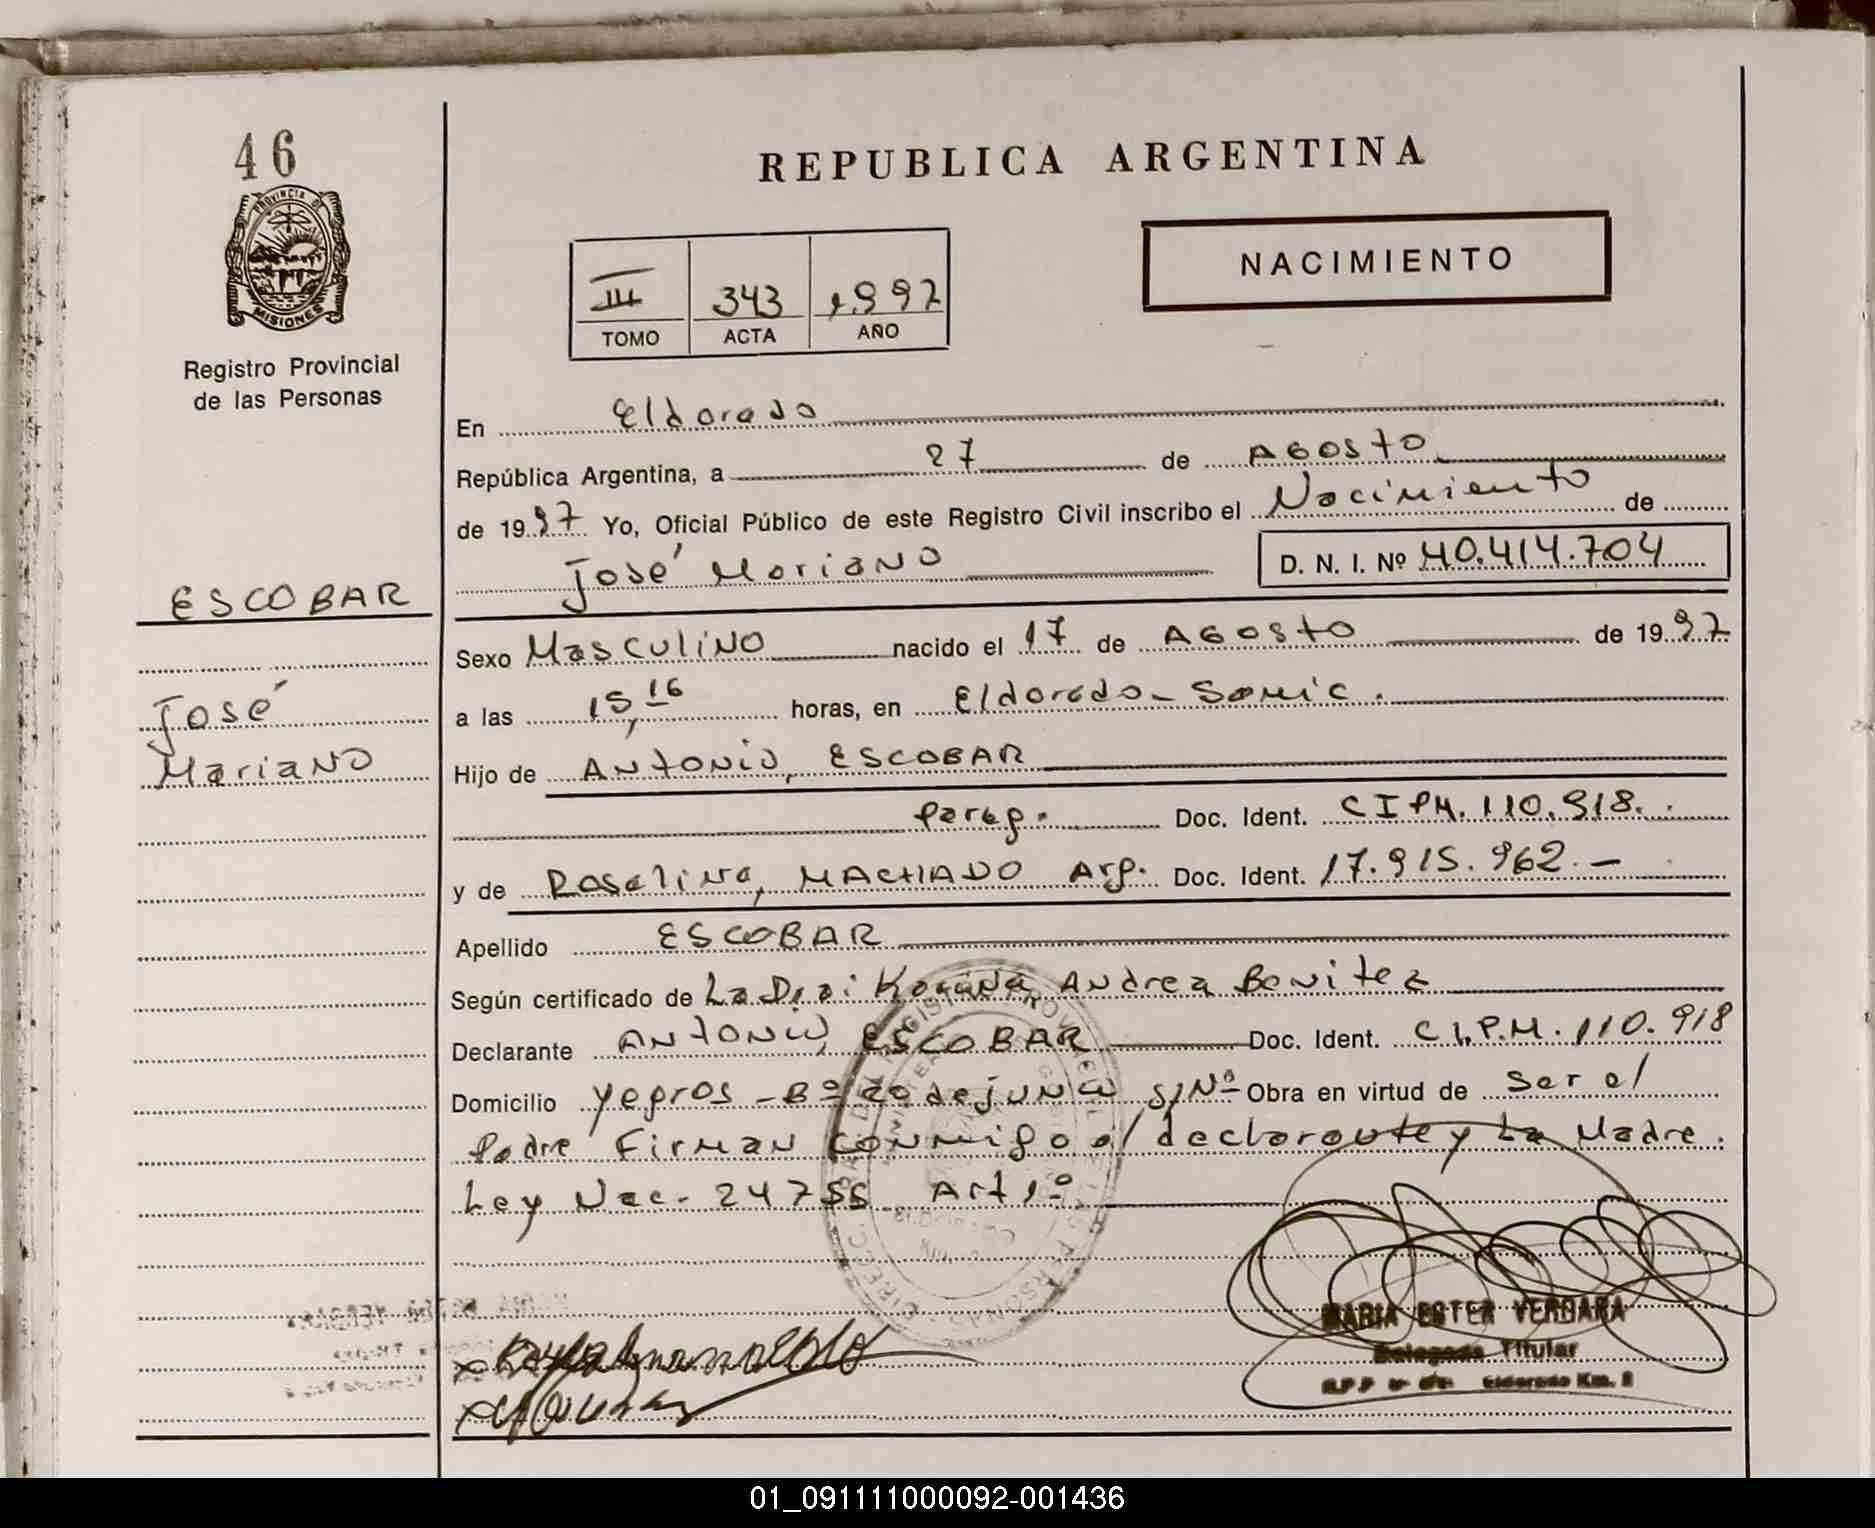 46
PROVINCIA D
MISIONES
Registro Provincial
de las Personas
ESCOBAR
José
Mariano
REPUBLICA ARGENTINA
NACIMIENTO
III 343 1.997
TOMO ACTA AÑO
En Eldorado
República Argentina, a 27 de AGOSTO
de 1997 Yo, Oficial Público de este Registro Civil inscribo el Nacimiento de
José Mariano D. N. I. Nº 40.414.704
Sexo Masculino nacido el 17 de AGOSTO de 1997
a las 15,16 horas, en Eldorado - Samic.
Hijo de ANTONIO, ESCOBAR
Parag. Doc. Ident. CIPM. 110.918.
y de Rosalina, MACHADO Arg. Doc. Ident. 17.915.962.-
Apellido ESCOBAR
Según certificado de La Dra: Andrea Benitez
Declarante ANTONIO, ESCOBAR Doc. Ident. C.I.P.M. 110.918
Domicilio Yegros - Bº 20 de junio S/Nº Obra en virtud de Ser el
Padre Firman conmigo el declarante y La Madre.
Ley Nac. 24755 Art 1º
MARIA ESTER VERGARA
Delegada Titular
Eldorado Km.
01_091111000092-001436